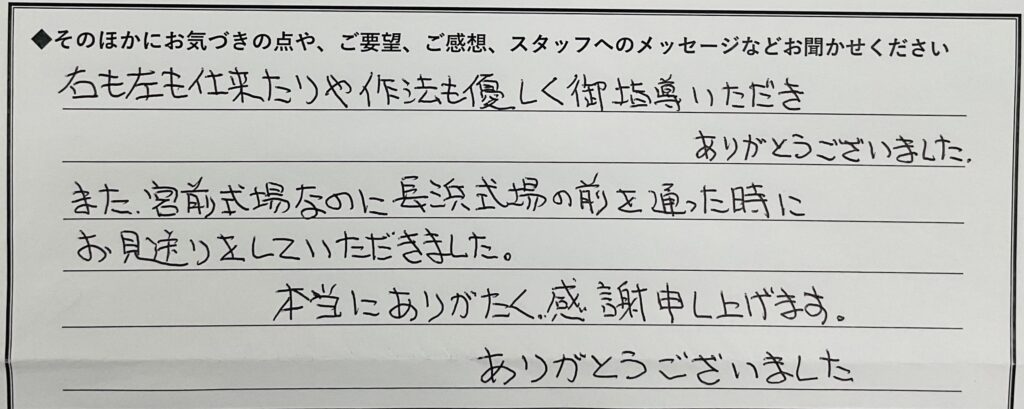 ◆そのほかにお気づきの点や、ご要望、ご感想、スタッフへのメッセージなどお聞かせください
右も左も仕来たりや作法も優しく御指導いただき
ありがとうございました.
また、宮前式場なのに長浜式場の前を通った時に
お見送りをしていただきました。
本当にありがたく、感謝申し上げます。
ありがとうございました